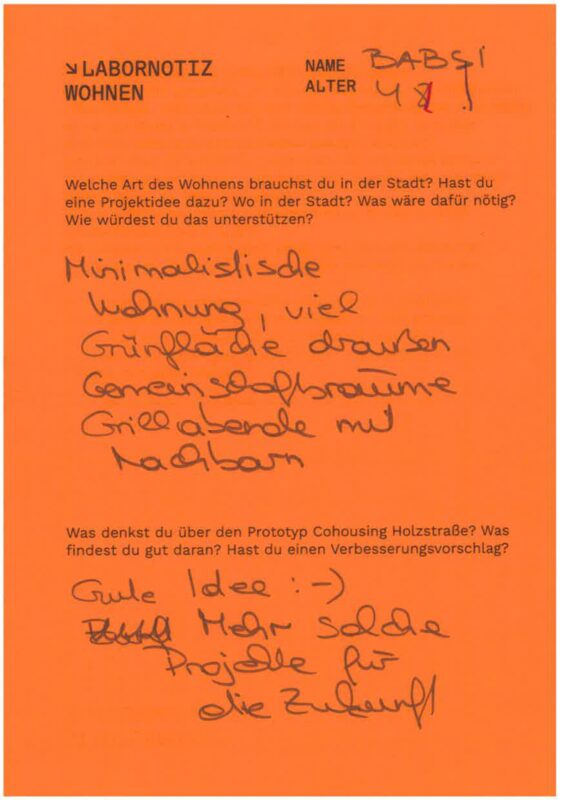 ↘ LABORNOTIZ
WOHNEN
NAME BABSI
ALTER 48!
Welche Art des Wohnens brauchst du in der Stadt? Hast du
eine Projektidee dazu? Wo in der Stadt? Was wäre dafür nötig?
Wie würdest du das unterstützen?
Minimalistische
Wohnung, viel
Grünfläche draußen
Gemeinschaftsräume
Grillabende mit
Nachbarn
Was denkst du über den Prototyp Cohousing Holzstraße? Was
findest du gut daran? Hast du einen Verbesserungsvorschlag?
Gute Idee :-)
Mehr solche
Projekte für
die Zukunft